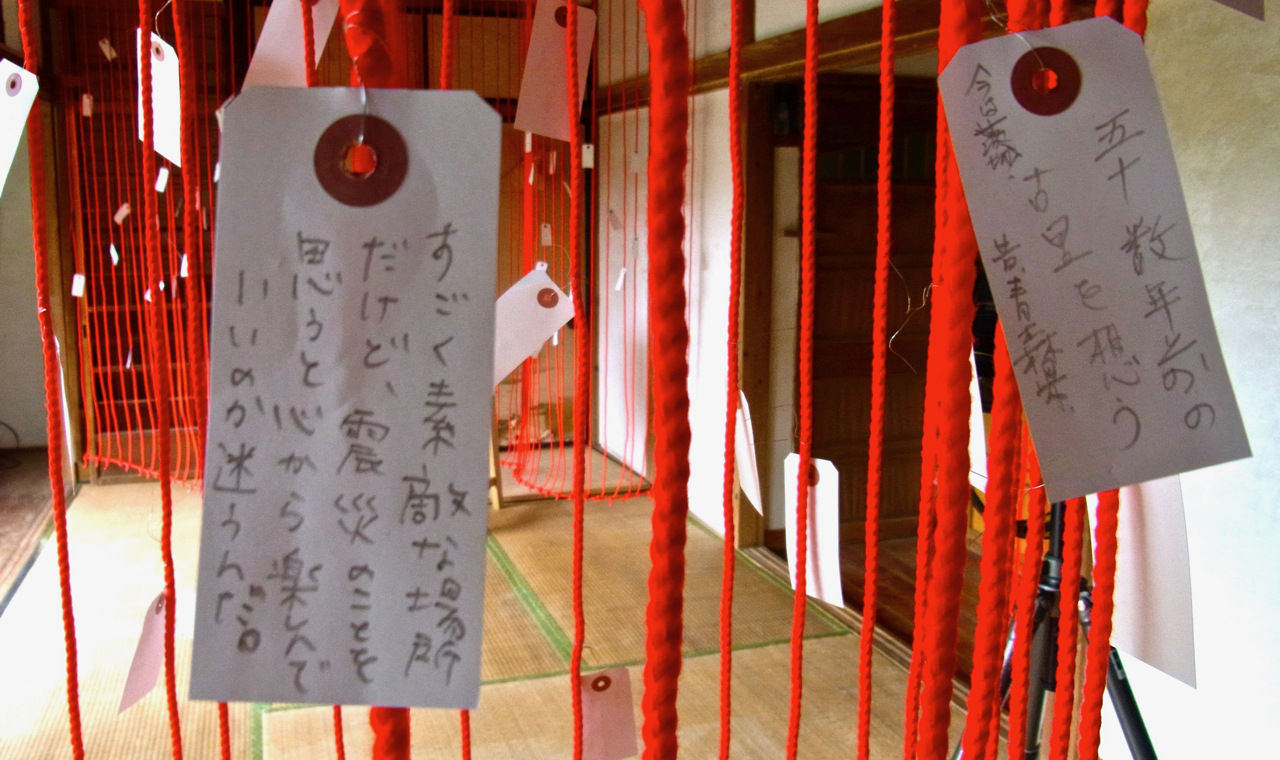 すごく素敵な場所
だけど、震災のことを
思うと心から楽しんで
いいのか迷うんだ。
五十数年前の
古里を想う
今は 昔、青春